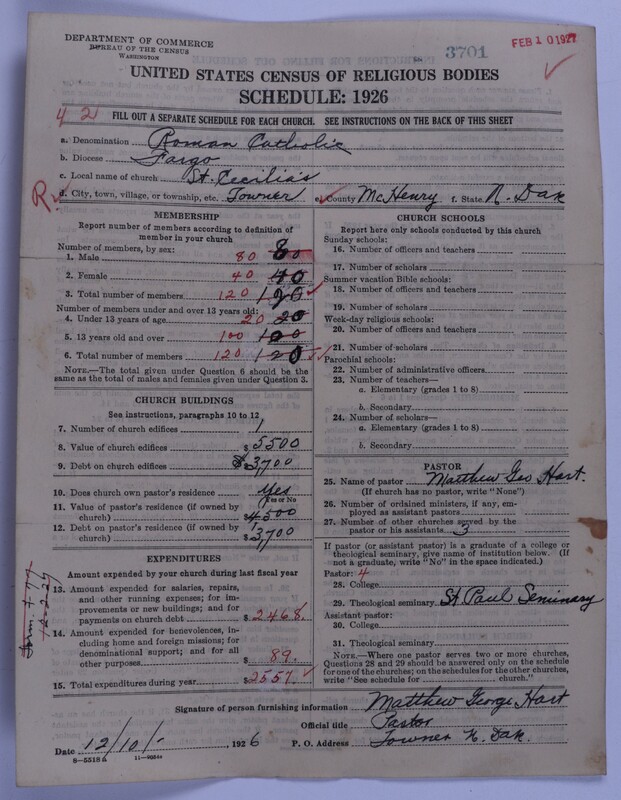 DEPARTMENT OF COMMERCE
BUREAU OF THE CENSUS
WASHINGTON
3701
FEB 10 1927
UNITED STATES CENSUS OF RELIGIOUS BODIES
SCHEDULE: 1926
42
FILL OUT A SEPARATE SCHEDULE FOR EACH CHURCH. SEE INSTRUCTIONS ON THE BACK OF THIS SHEET
a. Denomination Roman Catholic
b. Diocese Fargo
c. Local name of church St. Cecilia's
R
d. City, town, village, or township, etc. Towner e. County McHenry f. State N. Dak
MEMBERSHIP
Report number of members according to definition of member in your church
Number of members, by sex:
1. Male 80 80
2. Female 40 40
3. Total number of members 120 120
Number of members under and over 13 years old:
4. Under 13 years of age 20 20
5. 13 years old and over 100 100
6. Total number of members 120 120
NOTE.—The total given under Question 6 should be the same as the total of males and females given under Question 3.
CHURCH BUILDINGS
See instructions, paragraphs 10 to 12
7. Number of church edifices 1
8. Value of church edifices $5500
9. Debt on church edifices $3700
10. Does church own pastor's residence yes
Yes or No
11. Value of pastor's residence (if owned by church) $4500
12. Debt on pastor's residence (if owned by church) $3700
EXPENDITURES
Amount expended by your church during last fiscal year
13. Amount expended for salaries, repairs, and other running expenses; for improvements or new buildings; and for payments on church debt $2468.
14. Amount expended for benevolences, including home and foreign missions; for denominational support; and for all other purposes $89.
15. Total expenditures during year $2557.
CHURCH SCHOOLS
Report here only schools conducted by this church
Sunday schools:
16. Number of officers and teachers
17. Number of scholars
Summer vacation Bible schools:
18. Number of officers and teachers
19. Number of scholars
Week-day religious schools:
20. Number of officers and teachers
21. Number of scholars
Parochial schools:
22. Number of administrative officers
23. Number of teachers—
a. Elementary (grades 1 to 8)
b. Secondary
24. Number of scholars—
a. Elementary (grades 1 to 8)
b. Secondary
PASTOR
25. Name of pastor Matthew Geo Hart.
(If church has no pastor, write "None")
26. Number of ordained ministers, if any, employed as assistant pastors
27. Number of other churches served by the pastor or his assistants 3
If pastor (or assistant pastor) is a graduate of a college or theological seminary, give name of institution below. (If not a graduate, write "No" in the space indicated.)
Pastor: 4
28. College
29. Theological seminary St Paul Seminary
Assistant pastor:
30. College
31. Theological seminary
NOTE.—Where one pastor serves two or more churches, Questions 28 and 29 should be answered only on the schedule for one of the churches; on the schedules for the other churches, write "See schedule for church."
Signature of person furnishing information Matthew George Hart
Official title Pastor
Date 12/10/- 1926 P. O. Address Towner N. Dak.
8—5518a 11—9084a